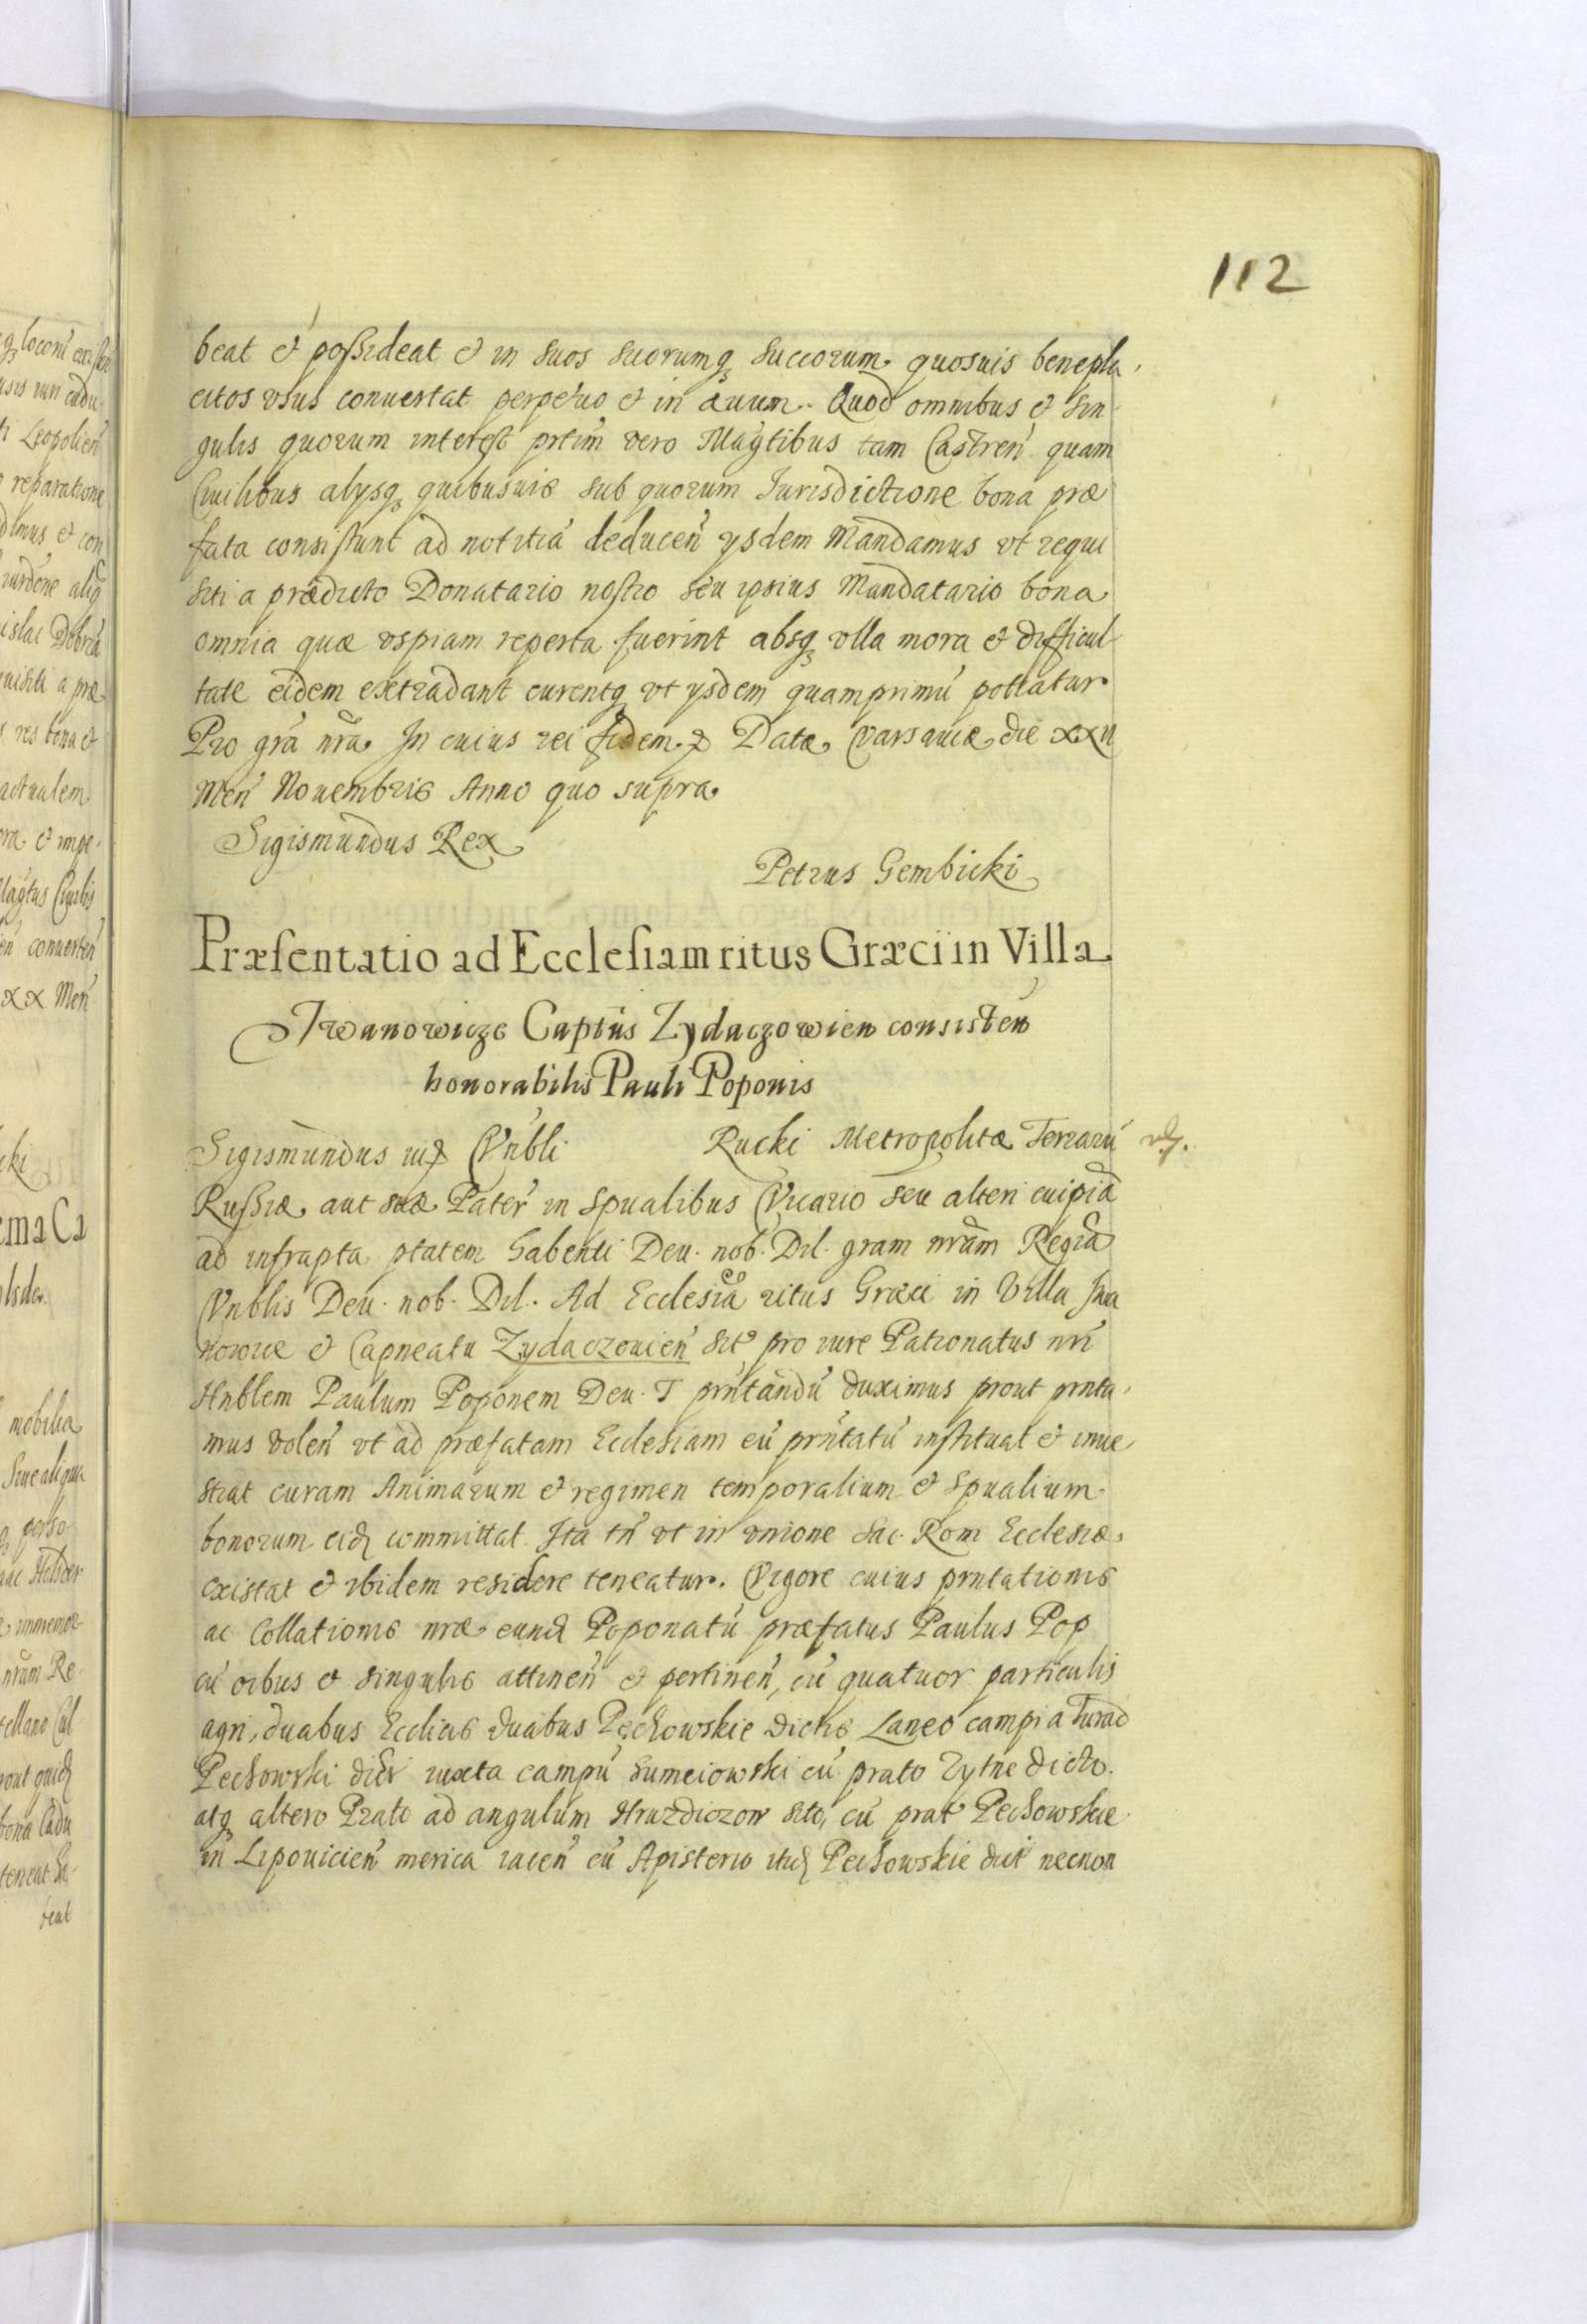 112
beat et possideat et in suos suorumq succorum quosuis benepla
citos vsus conuertat perpetuo et in æuum. Quod omnibus et sin
gulis quorum interest prtim vero Magtibus tam Castren quam
Ciuilibus alysq quibusuis sub quorum Iurisdictione bona præ
fata consistunt ad notitiã deducen ysdem Mandamus vt requi
siti a prædicto Donatario nostro seu ipsius Mandatario bona
omnia quæ vspiam reperta fuerint absq vlla mora et difficul
tate eidem extradant curentq vt ysdem quamprimũ potiatur
Pro grã nrã. In cuius rei fidem Datæ Varsauiæ die xxii
Men Nouembris Anno quo supra
Sigismundus Rex
Petrus Gembicki
Præsentatio ad Ecclesiam ritus Græci in Villa
Iwanowicze Captũs Zydaczowien consisten
honorabilis Pauli Poponis
Sigismundus iii Vnbli Rucki Metropolitæ Terrarũ
Russiæ aut suæ Pater in spualibus Vicario seu alteri cuipiã
ad infrapta ptatem habenti Deu. nob. Dil. gram nrãm Regiã
Vnblis Deu. nob. Dil. Ad Ecclesiã ritus Græci in Villa Iwa
nowice et Capneatu Zydaczouien sit pro iure Patronatus nri
Hnblem Paulum Poponem Deu. T prntandũ duximus prout prnta
mus volen vt ad præfatam Ecclesiam eũ prntatũ instituat et inue
stiat curam Animarum et regimen temporalium et spualium
bonorum eid committat. Ita tn vt in vnione Sac. Rom Ecclesiæ
existat et ibidem residere teneatur. Vigore cuius prntationis
ac Collationis nræ eund Poponatũ præfatus Paulus Pop
cũ oibus et singulis attinen et pertinen, cũ quatuor particulis
agri, duabus duabus Pechowskie dictis Laneo campi a
Pechowski dict iuxta campũ Sumeiowski cũ prato Zytne dicto.
atq altero Prato ad angulum sito, cũ prat Pechowskie
in Lipouicien merica iacen cũ Apisterio itid Pechowskie dict necnon